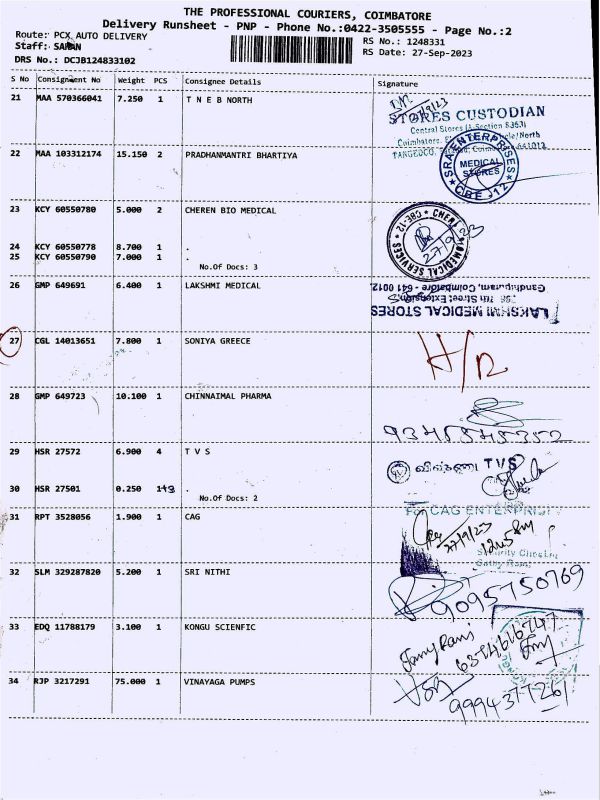 THE PROFESSIONAL COURIERS, COIMBATORE
Delivery Runsheet - PNP - Phone No.:0422-3505555 - Page No.:2
Route: PCX AUTO DELIVERY RS No.: 1248331
Staff: RS Date: 27-Sep-2023
DRS No.: DCJB124833102
S No Consignment No Weight PCS Consignee Details Signature
21 MAA 570366041 7.250 1 T N E B NORTH
STORES CUSTODIAN
22 MAA 103312174 15.150 2 PRADHANMANTRI BHARTIYA
SRA ENTERPRISES MEDICAL STORES CBE J12
23 KCY 60550780 5.000 2 CHEREN BIO MEDICAL
27/9/23
24 KCY 60550778 8.700 1 .
25 KCY 60550790 7.000 1 .
No.Of Docs: 3
26 GMP 649691 6.400 1 LAKSHMI MEDICAL
LAKSHMI MEDICAL STORES
7th Street Extension,
Gandhipuram, Coimbatore - 641 0012
27 CGL 14013651 7.800 1 SONIYA GREECE
28 GMP 649723 10.100 1 CHINNAIMAL PHARMA
29 HSR 27572 6.900 4 T V S
TVS
30 HSR 27501 0.250 1+3 .
No.Of Docs: 2
31 RPT 3528056 1.900 1 CAG
For CAG ENTERPRISE
27/9/23
32 SLM 329287820 5.200 1 SRI NITHI
9095750769
33 EDQ 11788179 3.100 1 KONGU SCIENFIC
34 RJP 3217291 75.000 1 VINAYAGA PUMPS
9994377261